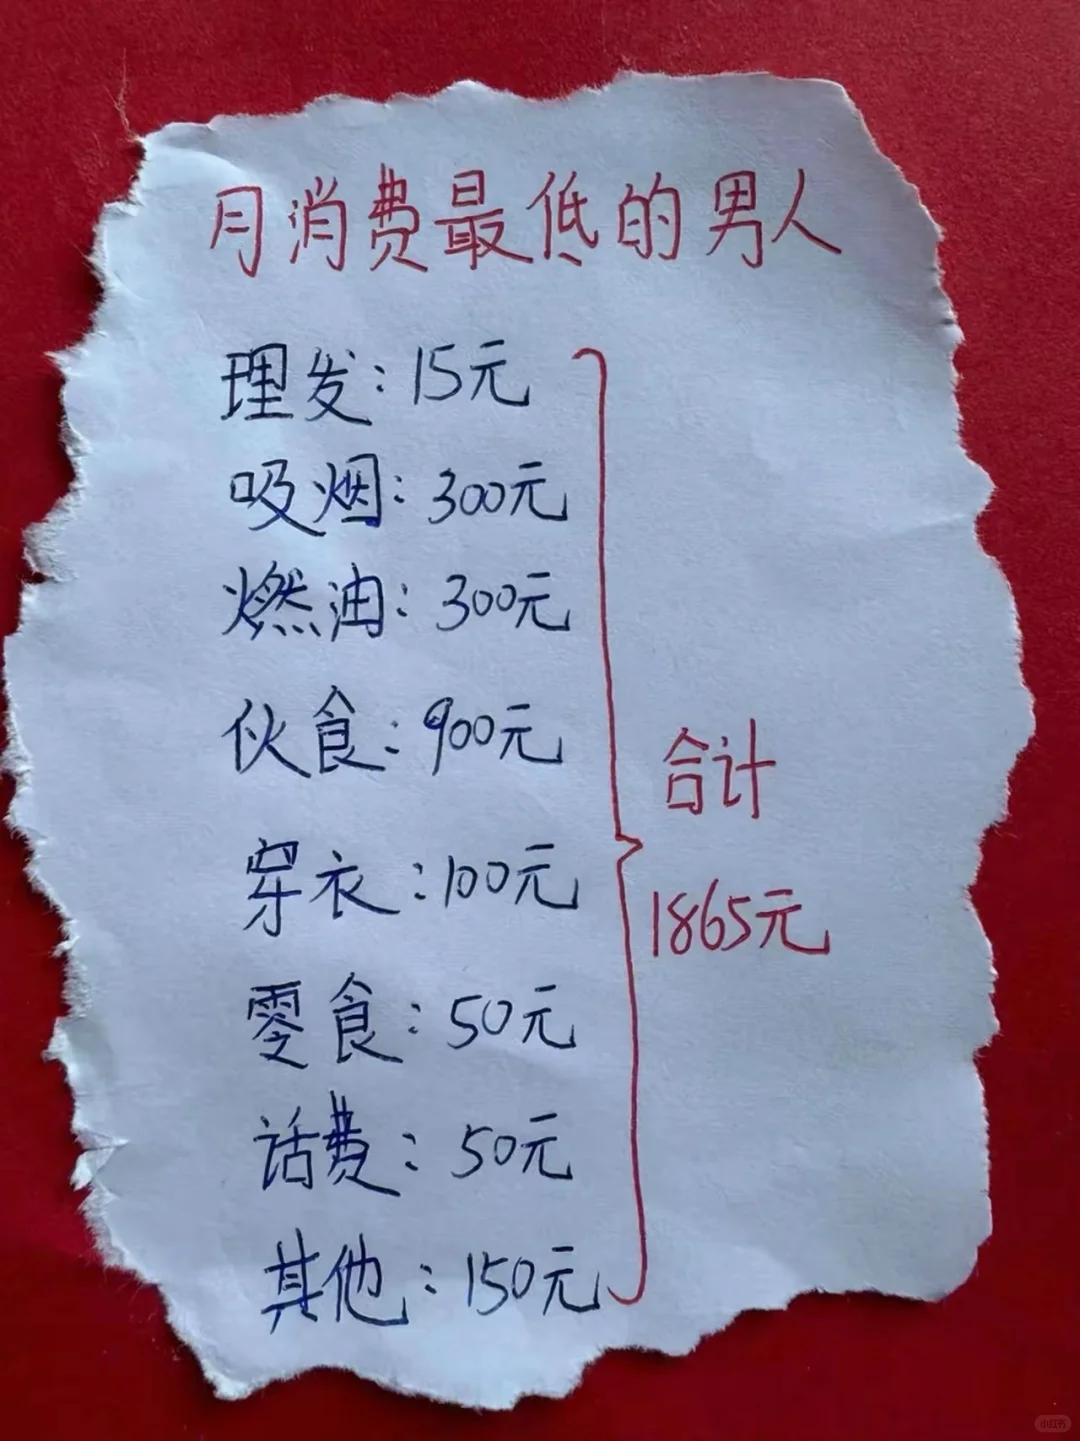 月消费最低的男人
理发：15元
吸烟：300元
燃油：300元
伙食：900元
穿衣：100元
零食：50元
话费：50元
其他：150元
合计
1865元
小红书